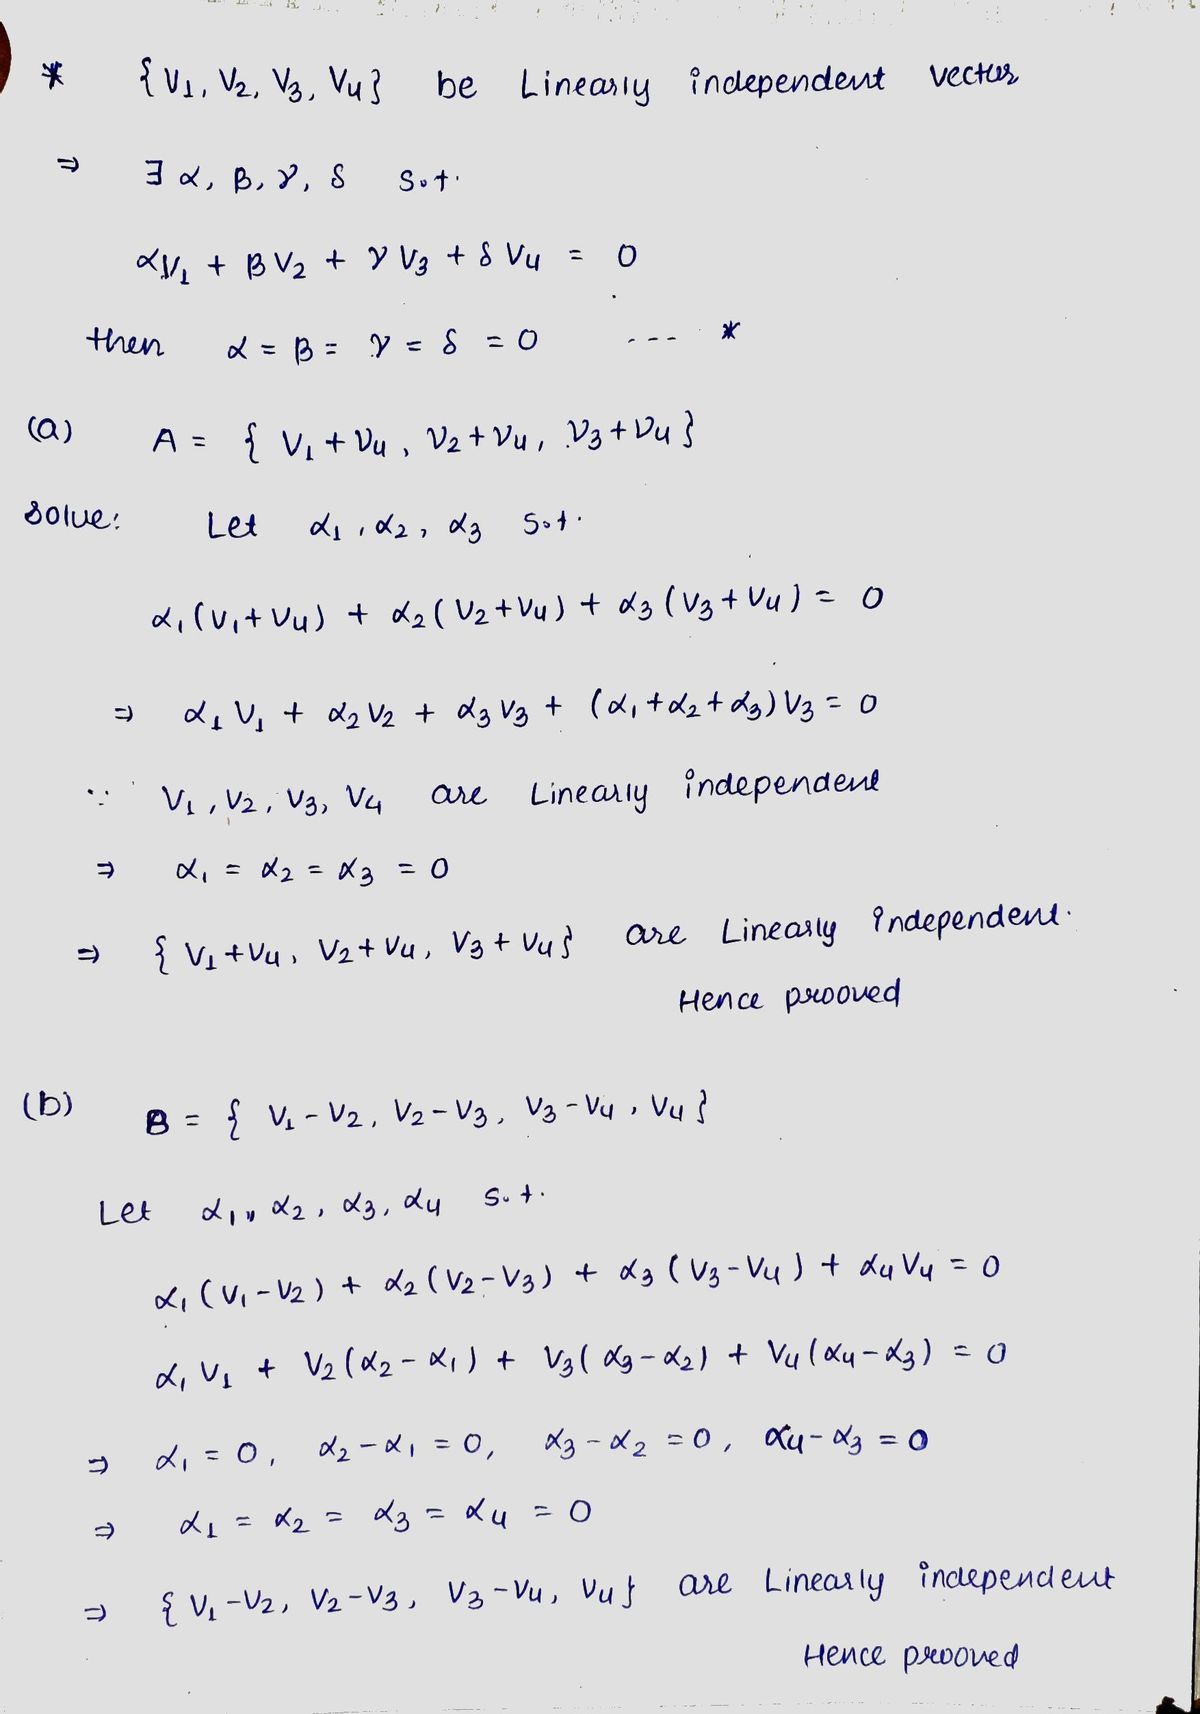 * {V1, V2, V3, V4} be Linearly independent vectors
⇒ ∃ α, β, γ, δ s.t.
αV1 + βV2 + γV3 + δV4 = 0
then α = β = γ = δ = 0 --- *
(a) A = { V1 + V4, V2 + V4, V3 + V4 }
Solve: Let α1, α2, α3 s.t.
α1(V1 + V4) + α2(V2 + V4) + α3(V3 + V4) = 0
⇒ α1 V1 + α2 V2 + α3 V3 + (α1 + α2 + α3) V3 = 0
∵ V1, V2, V3, V4 are Linearly independent
⇒ α1 = α2 = α3 = 0
⇒ { V1 + V4, V2 + V4, V3 + V4 } are Linearly independent.
Hence prooved
(b) B = { V1 - V2, V2 - V3, V3 - V4, V4 }
Let α1, α2, α3, α4 s.t.
α1(V1 - V2) + α2(V2 - V3) + α3(V3 - V4) + α4 V4 = 0
α1 V1 + V2(α2 - α1) + V3(α3 - α2) + V4(α4 - α3) = 0
⇒ α1 = 0, α2 - α1 = 0, α3 - α2 = 0, α4 - α3 = 0
⇒ α1 = α2 = α3 = α4 = 0
⇒ { V1 - V2, V2 - V3, V3 - V4, V4 } are Linearly independent
Hence prooved